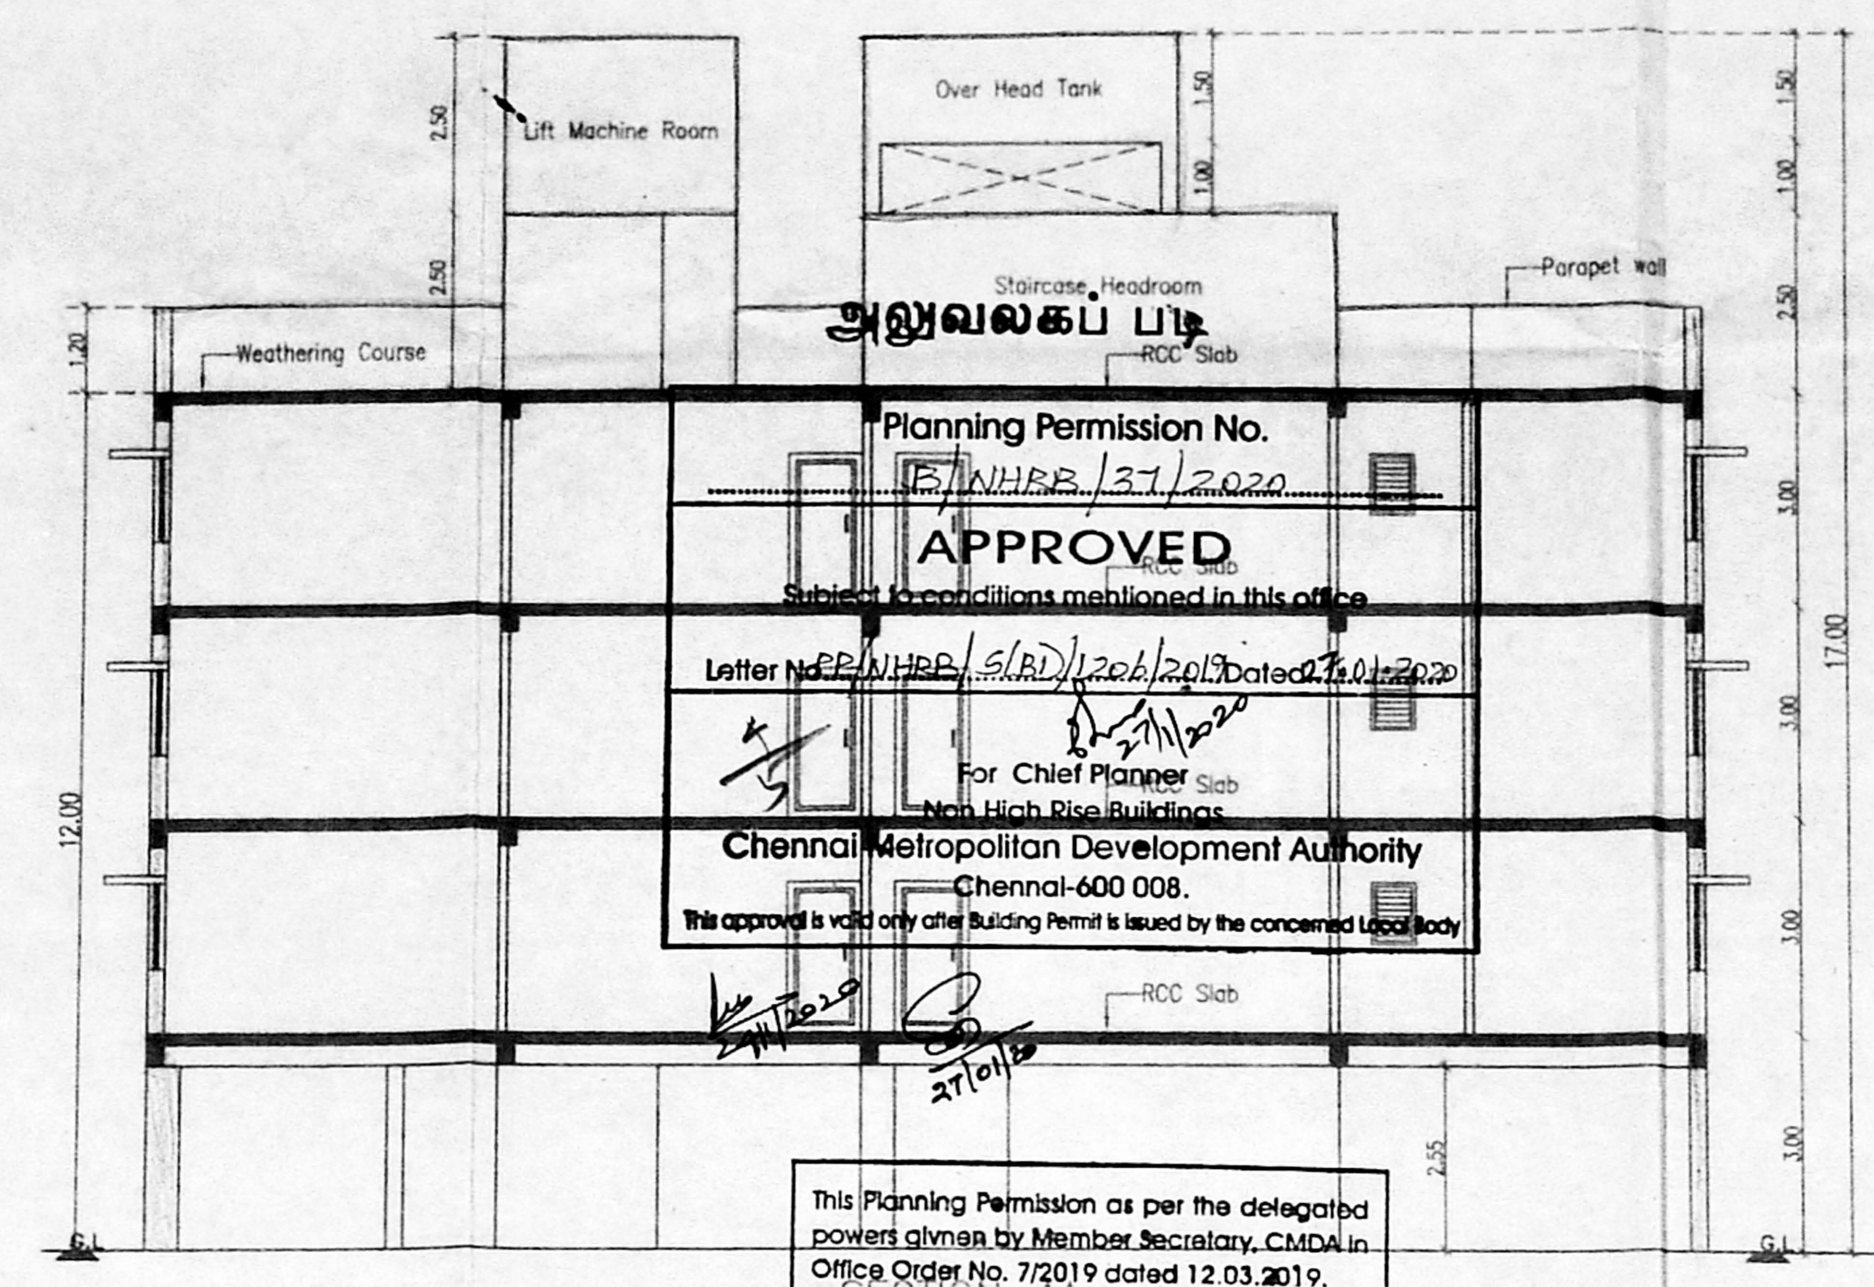 Over Head Tank
1.50
1.50
2.50
Lift Machine Room
1.00
1.00
2.50
Staircase Headroom
Parapet wall
2.50
அலுவலகப் படி
1.20
Weathering Course
RCC Slab
Planning Permission No.
B/NHRB/37/2020
3.00
APPROVED
RCC Slab
Subject to conditions mentioned in this office
17.00
Letter No. PP/NHRB/S(B1)/1206/2019 Dated 27.01.2020
3.00
27/1/2020
For Chief Planner
RCC Slab
Non High Rise Buildings
12.00
Chennai Metropolitan Development Authority
Chennai-600 008.
This approval is valid only after Building Permit is issued by the concerned Local Body
3.00
RCC Slab
27/01/20
2.55
3.00
This Planning Permission as per the delegated
powers givnen by Member Secretary, CMDA in
Office Order No. 7/2019 dated 12.03.2019.
G.L
G.L